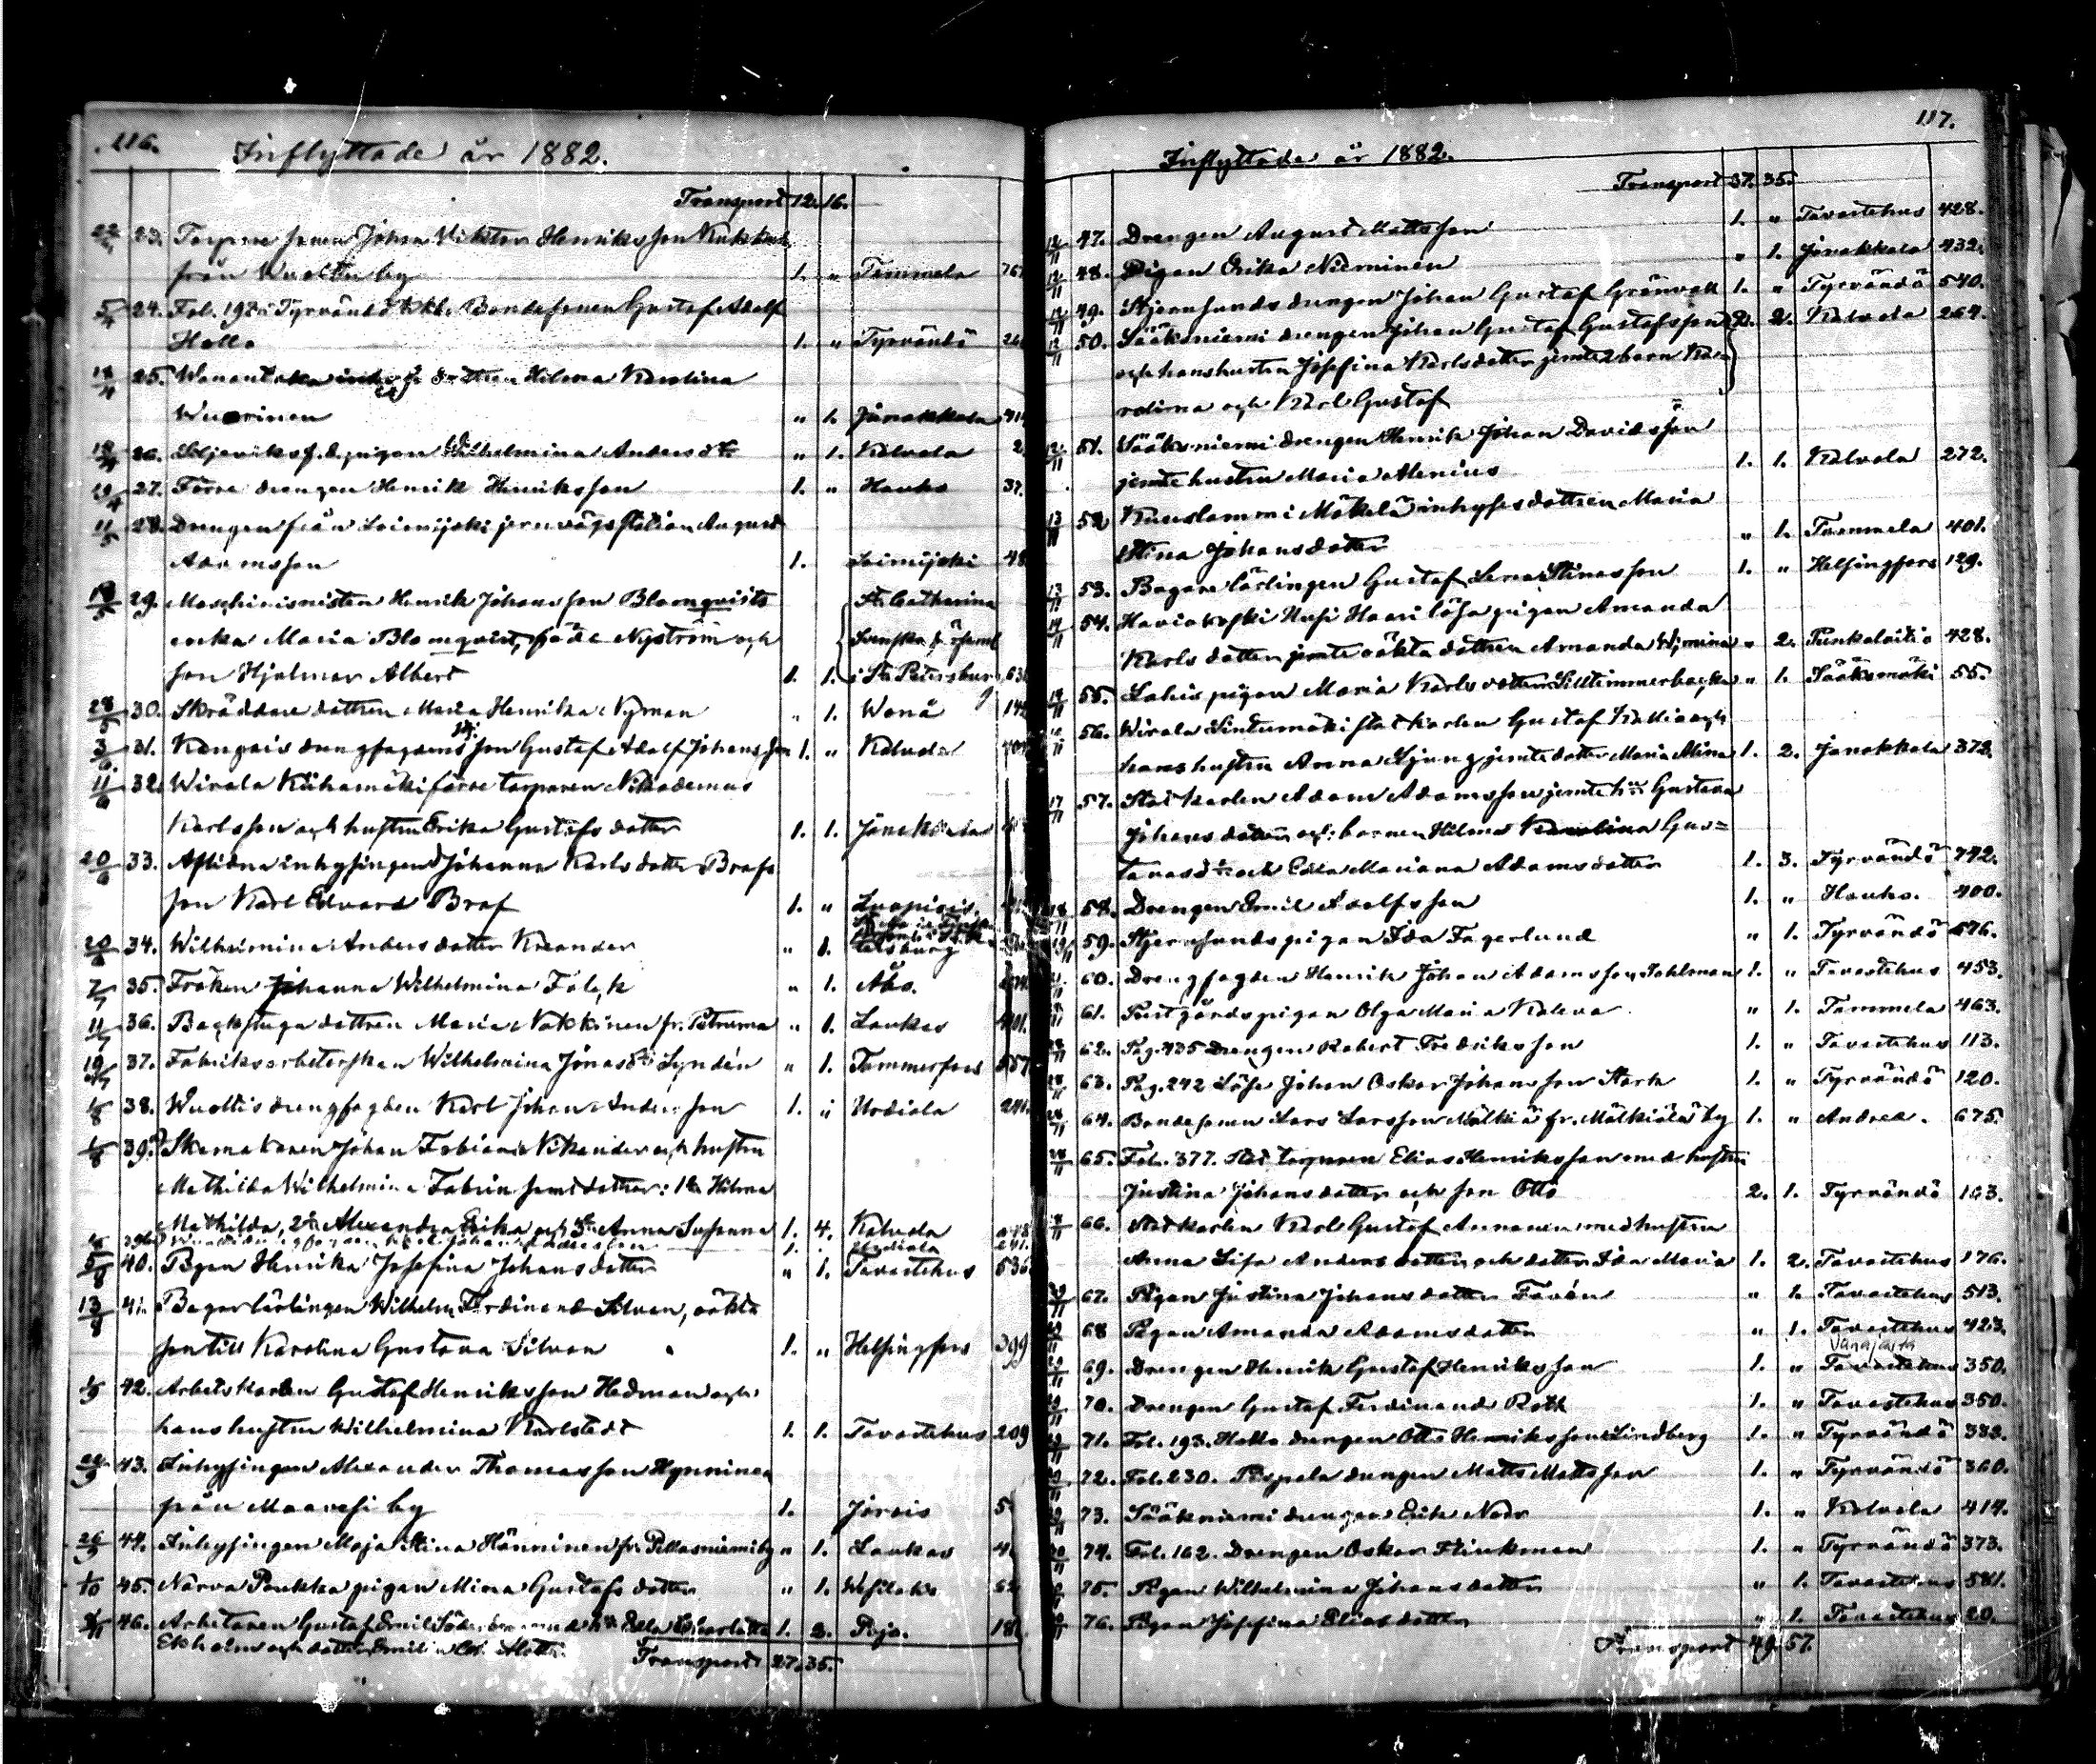 116.
Inflyttade år 1882.
Transport 12. 16.
23. Torpare sonen Johan Viktor Henriksson
från Wuoltu by 1. " Tammela
5/4 24. Fol. 192 i Tyrvändö Bondesonen Gustaf Adolf
Hallo 1. " Tyrvändö
25. dottren Hilma Karolina
Wuorinen " 1. Janakkala
26. pigan Wilhelmina Andersdr " 1. Kalvola
27. Förre drengen Henrik Henriksson 1. " Hauho 37.
11/5 28. Drengen från Loimijoki jernvägsstation August
Adamsson 1. Loimijoki 48
29. Maschinisnisten Henrik Johansson Blomqvists
enka Maria Blomqvist, född Nyström och
son Hjalmar Albert 1. 1.
St. Catharina
Svenska församl
i St. Petersburg
28/5 30. Skräddare dottren Maria Henrika Nyman " 1. Wånå
31. Kangais drengfogdens son Gustaf Adolf Johansson 1. " Kalvola
11/6 32. Wirala Riihamäki förre torparen Nikodemus
Karlsson och hustru Erika Gustafsdotter 1. 1. Janakkala
20/6 33. Aflidna inhysingen Johanna Karlsdotter Brafs
son Karl Edvard Braf 1. " Loppis
20/6 34. Wilhelmina Andersdotter Kreander " 1.
7/7 35. Fröken Johanna Wilhelmina Falck " 1. Åbo.
11/7 36. Backstuga dottren Maria Nokkinen fr. " 1. Laukas
19/7 37. Fabriksarbeterskan Wilhelmina Jonasdr Lyndén " 1. Tammerfors
1/8 38. Wuoltis drengfogden Karl Johan Andersson 1. " Urdiala 241.
1/8 39. Skomakaren Johan Fabian Nikander och hustru
Mathilda Wilhelmina Fabrin samt döttrar: 1a Hilma
Mathilda, 2a Alexandra Erika och 3a Anna Susanna 1. 4. Kalvola
1. Urdiala 241.
5/8 40. Pigan Henrika Josefina Johansdotter " 1. Tavastehus 536
13/8 41. Bagarlärlingen Wilhelm Ferdinand Silvan, oäkta
son till Karolina Gustava Silvan 1. " Helsingfors 399
1/9 42. Arbetskarlen Gustaf Henriksson Hedman och
hans hustru Wilhelmina Karlstedt 1. 1. Tavastehus 209
43. Inhysingen Alexander Thomasson Hynninen
från Maavesi by 1. Jorois
26/9 44. Inhysingen Maja Stina Hänninen fr. by " 1. Laukas
1/10 45. Narva Penkka pigan Mina Gustafsdotter " 1. Wesilaks
46. Arbetaren Gustaf Emil med 1. 2. Pojo. 18
Ekholm och dotter
Transport 27. 35.
117.
Inflyttade år 1882.
Transport 37. 35.
12/11 47. Drengen August Mattsson 1. " Tavastehus 428.
12/11 48. Pigan Erika Nieminen " 1. Janakkala 432.
12/11 49. Stjernsunds drengen Johan Gustaf Grönvall 1. " Tyrvändö 540.
12/11 50. Sääksniemi drengen Johan Gustaf Gustafsson 2. 2. Kalvola 264.
och hans hustru Josefina Karlsdotter jemte 2 barn Ka-
rolina och Karl Gustaf
12/11 51. Sääksniemi drengen Henrik Johan Davidsson
jemte hustru Maria Alenius 1. 1. Kalvola 272.
13/11 52. Kuuslammi Mäkelä inhyses dottren Maria
Stina Johansdotter " 1. Tammela 401.
13/11 53. Bagare lärlingen Gustaf Lena Stinasson 1. " Helsingfors 129.
14/11 54. Haviokoski Uusi Haari lösa pigan Amanda
Karlsdotter jemte oäkta dottren Amanda " 2. Punkalaitio 428.
55. Lahis pigan Maria Karlsdotter " 1. Sääksmäki 55.
56. Wirala Sintumäki statkarlen Gustaf Kallio och
hans hustru Anna Ljung jemte dotter Maria Alina 1. 2. Janakkala 372.
17/11 57. Statkarlen Adam Adamsson jemte h:u Gustava
Johansdotter och barnen Hilma Karolina Gus-
tavasdr och Edla Mariana Adamsdotter 1. 3. Tyrvändö 742.
18/11 58. Drengen Emil Adolfsson 1. " Hauho. 400.
19/11 59. Stjernsunds pigan Ida Fagerlund " 1. Tyrvändö 576.
60. Drengfogden Henrik Johan Adamsson Tohlman 1. " Tavastehus 453.
61. Prestgårds pigan Olga Maria Kaleva " 1. Tammela 463.
62. Pag. 435 Drengen Robert Fredriksson 1. " Tavastehus 113.
63. Pag. 242 Löse Johan Oskar Johansson Stark 1. " Tyrvändö 120.
64. Bondesonen Lars Larsson Mälkiä fr. Mälkiälä by 1. " Andrea. 675.
65. Fol. 377. Stat torparen Elias Henriksson med hustru
Justina Johansdotter och son Otto 2. 1. Tyrvändö 103.
66. Statkarlen Karl Gustaf Annanen med hustru
Anna Lisa Andersdotter och dotter Ida Maria 1. 2. Tavastehus 176.
67. Pigan Justina Johansdotter Favén " 1. Tavastehus 513.
68 Pigan Amanda Adamsdotter " 1. Tavastehus 423.
Vanaja
69. Drengen Henrik Gustaf Henriksson 1. " Tavastehus 350.
70. Drengen Gustaf Ferdinand Roth 1. " Tavastehus 350.
71. Fol. 193. Hallo drengen Otto Henriksson Lindberg 1. " Tyrvändö 383.
72. Fol. 230. drengen Matts Mattsson 1. " Tyrvändö 360.
73. Sääksniemi drengen Erik 1. " Kalvola 414.
74. Fol. 162. Drengen Oskar Flinkman 1. " Tyrvändö 373.
75. Pigan Wilhelmina Johansdotter " 1. Tavastehus 581.
76. Pigan Josefina Eliasdotter " 1. Tavastehus 20.
Transport 49. 57.